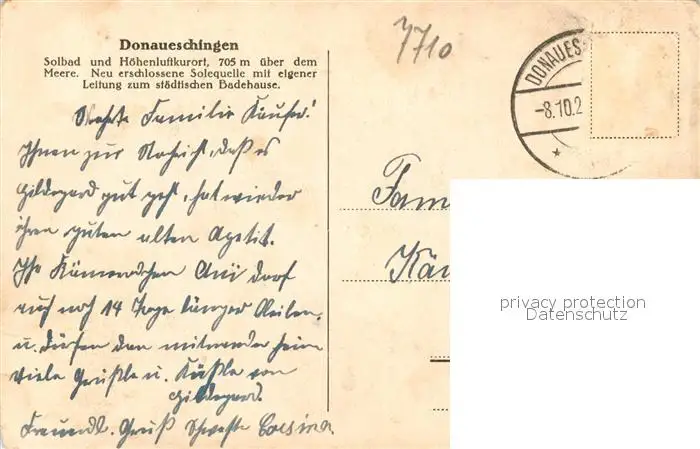 Donaueschingen
Solbad und Höhenluftkurort, 705 m über dem
Meere. Neu erschlossene Solequelle mit eigener
Leitung zum städtischen Badehause.
7710
DONAUES
-8.10.2
Werte Familie Käufer!
Ihnen zur Nachricht, daß es
Hildegard gut geht, hat wieder
ihren guten alten Apetit.
Ihr darf
auch noch 14 Tage länger bleiben,
u. dürfen dan miteinander heim
Viele Grüßle u. Küßle von
Hildegard.
Freundl. Gruß Schwester
Fam
Käu
privacy protection
Datenschutz